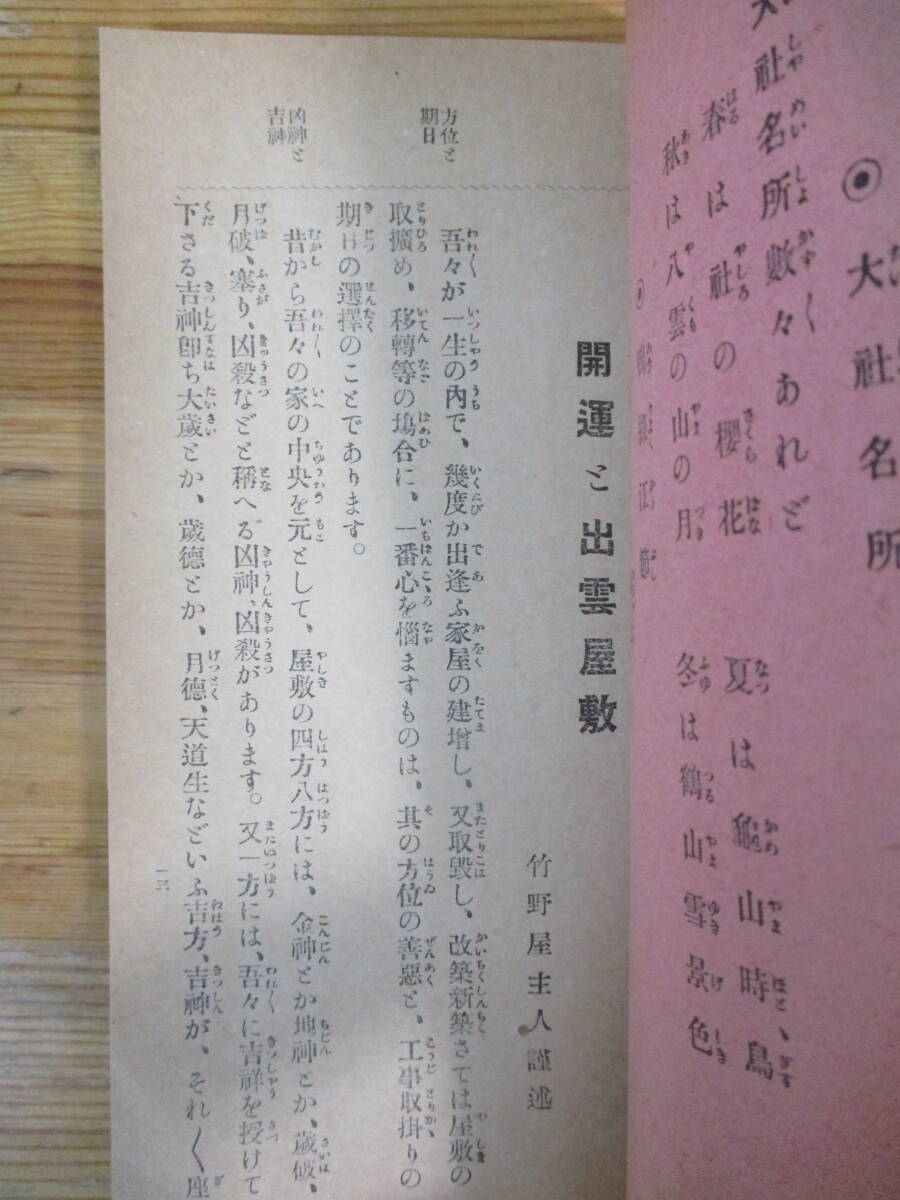 ◉大社名所
大社名所數々あれど
春は社の櫻花
夏は龜山時鳥
秋は八雲の山の月
冬は鶴山雪景色
開運と出雲屋敷
竹野屋主人謹述
方位と
期日
吾々が一生の內で、幾度か出逢ふ家屋の建增し、又取毀し、改築新築さては屋敷の
取擴め、移轉等の場合に、一番心を惱ますものは、其の方位の善惡と、工事取掛りの
期日の選擇のことであります。
凶神と
吉神
昔から吾々の家の中央を元として、屋敷の四方八方には、金神とか地神とか、歲破、
月破、塞り、凶殺などと稱へる凶神、凶殺があります。又一方には、吾々に吉祥を授けて
下さる吉神卽ち大歲とか、歲德とか、月德、天道生などいふ吉方、吉神が、それ〱座
一三